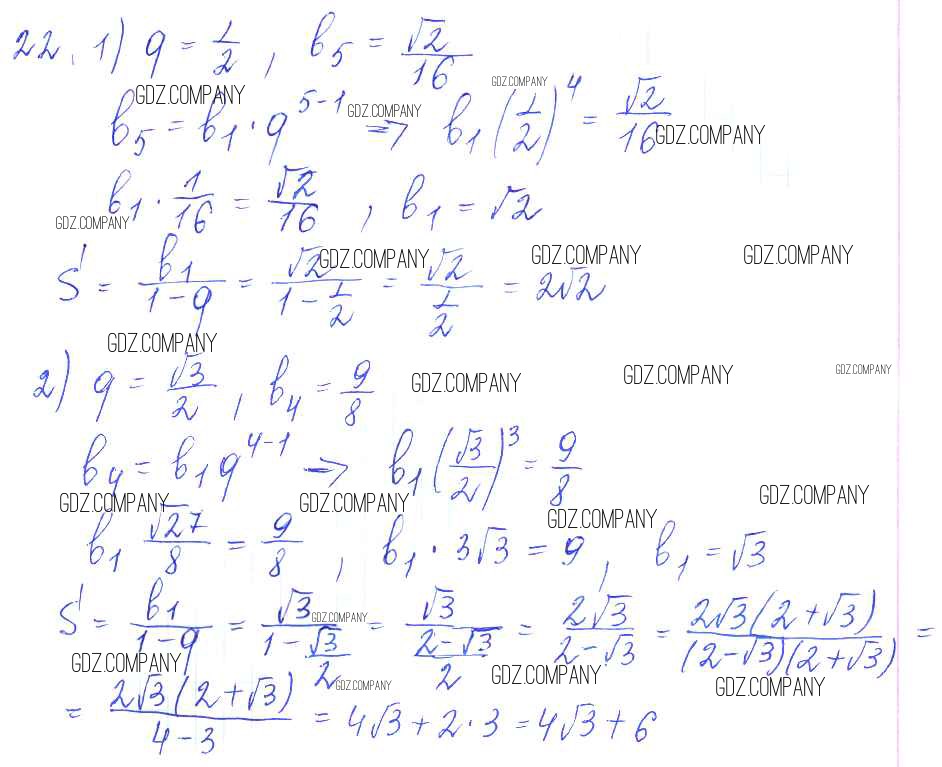 22. 1) q = 1/2, b₅ = √2/16
GDZ.COMPANY GDZ.COMPANY
b₅ = b₁ · q⁵⁻¹ GDZ.COMPANY => b₁(1/2)⁴ = √2/16 GDZ.COMPANY
b₁ · 1/16 = √2/16, b₁ = √2
GDZ.COMPANY
S = b₁/(1-q) = √2/(1-1/2) = √2/(1/2) = 2√2
GDZ.COMPANY GDZ.COMPANY GDZ.COMPANY
GDZ.COMPANY
2) q = √3/2, b₄ = 9/8
GDZ.COMPANY GDZ.COMPANY GDZ.COMPANY
b₄ = b₁q⁴⁻¹ => b₁(√3/2)³ = 9/8
GDZ.COMPANY GDZ.COMPANY GDZ.COMPANY GDZ.COMPANY
b₁ √27/8 = 9/8, b₁ · 3√3 = 9, b₁ = √3
S = b₁/(1-q) = √3/(1-√3/2) = √3/((2-√3)/2) = 2√3/(2-√3) = 2√3(2+√3)/((2-√3)(2+√3)) =
GDZ.COMPANY GDZ.COMPANY GDZ.COMPANY GDZ.COMPANY GDZ.COMPANY
= 2√3(2+√3)/(4-3) = 4√3 + 2·3 = 4√3 + 6